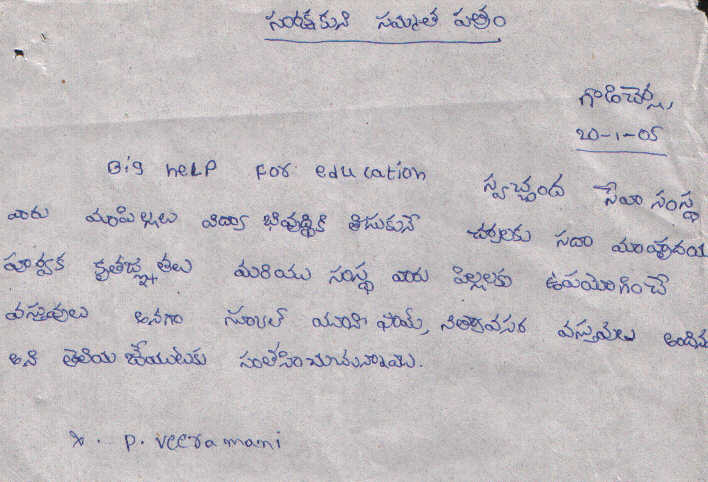 సంరక్షకుని సమ్మత పత్రం
గాడిచెర్ల,
20-1-05
Big help for education స్వచ్ఛంద సేవా సంస్థ
వారు మాపిల్లలు విద్యా భివృద్ధికి తీసుకునే చర్యలకు సదా మాహృదయ
పూర్వక కృతజ్ఞతలు మరియు సంస్థ వారు పిల్లలకు ఉపయోగించే
వస్తువులు అనగా స్కూల్ యూని ఫామ్స్, నిత్యావసర వస్తువులు అందిన
అని తెలియ జేయుటకు సంతోసించుచున్నాము.
x. P. veeramani